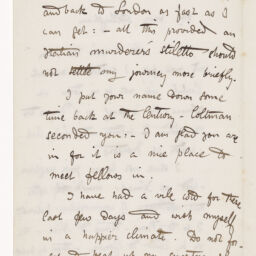 and back to London as fast as I
can get: - all this provided an
Italian murderers stiletto should
not settle my journey more briefly.
I put your name down some
time back at the Century - Coltman
seconded you: - I am glad you are
in for it is a nice place to
meet fellows in.
I have had a vile cold for these
last few days and wish myself
in a happier climate. Do not for-